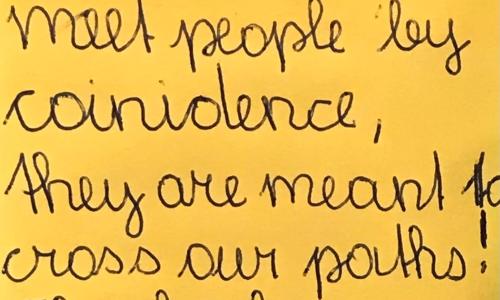 meet people by
coinidence,
they are meant to
cross our paths!